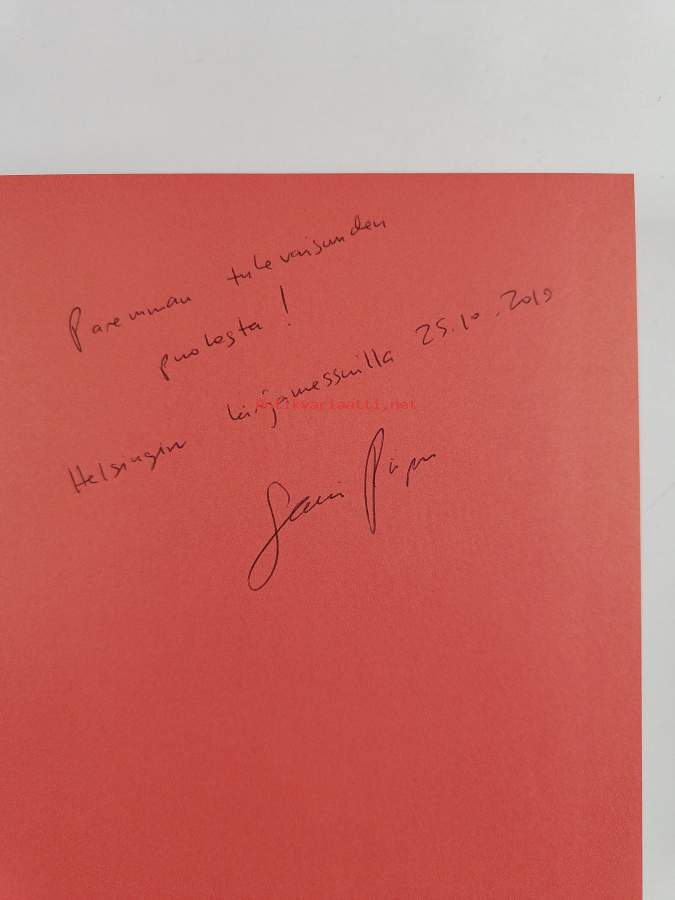 Paremman tulevaisuuden
puolesta!
Helsingin kirjamessuilla 25.10.2019
Antikvariaatti.net
Sami